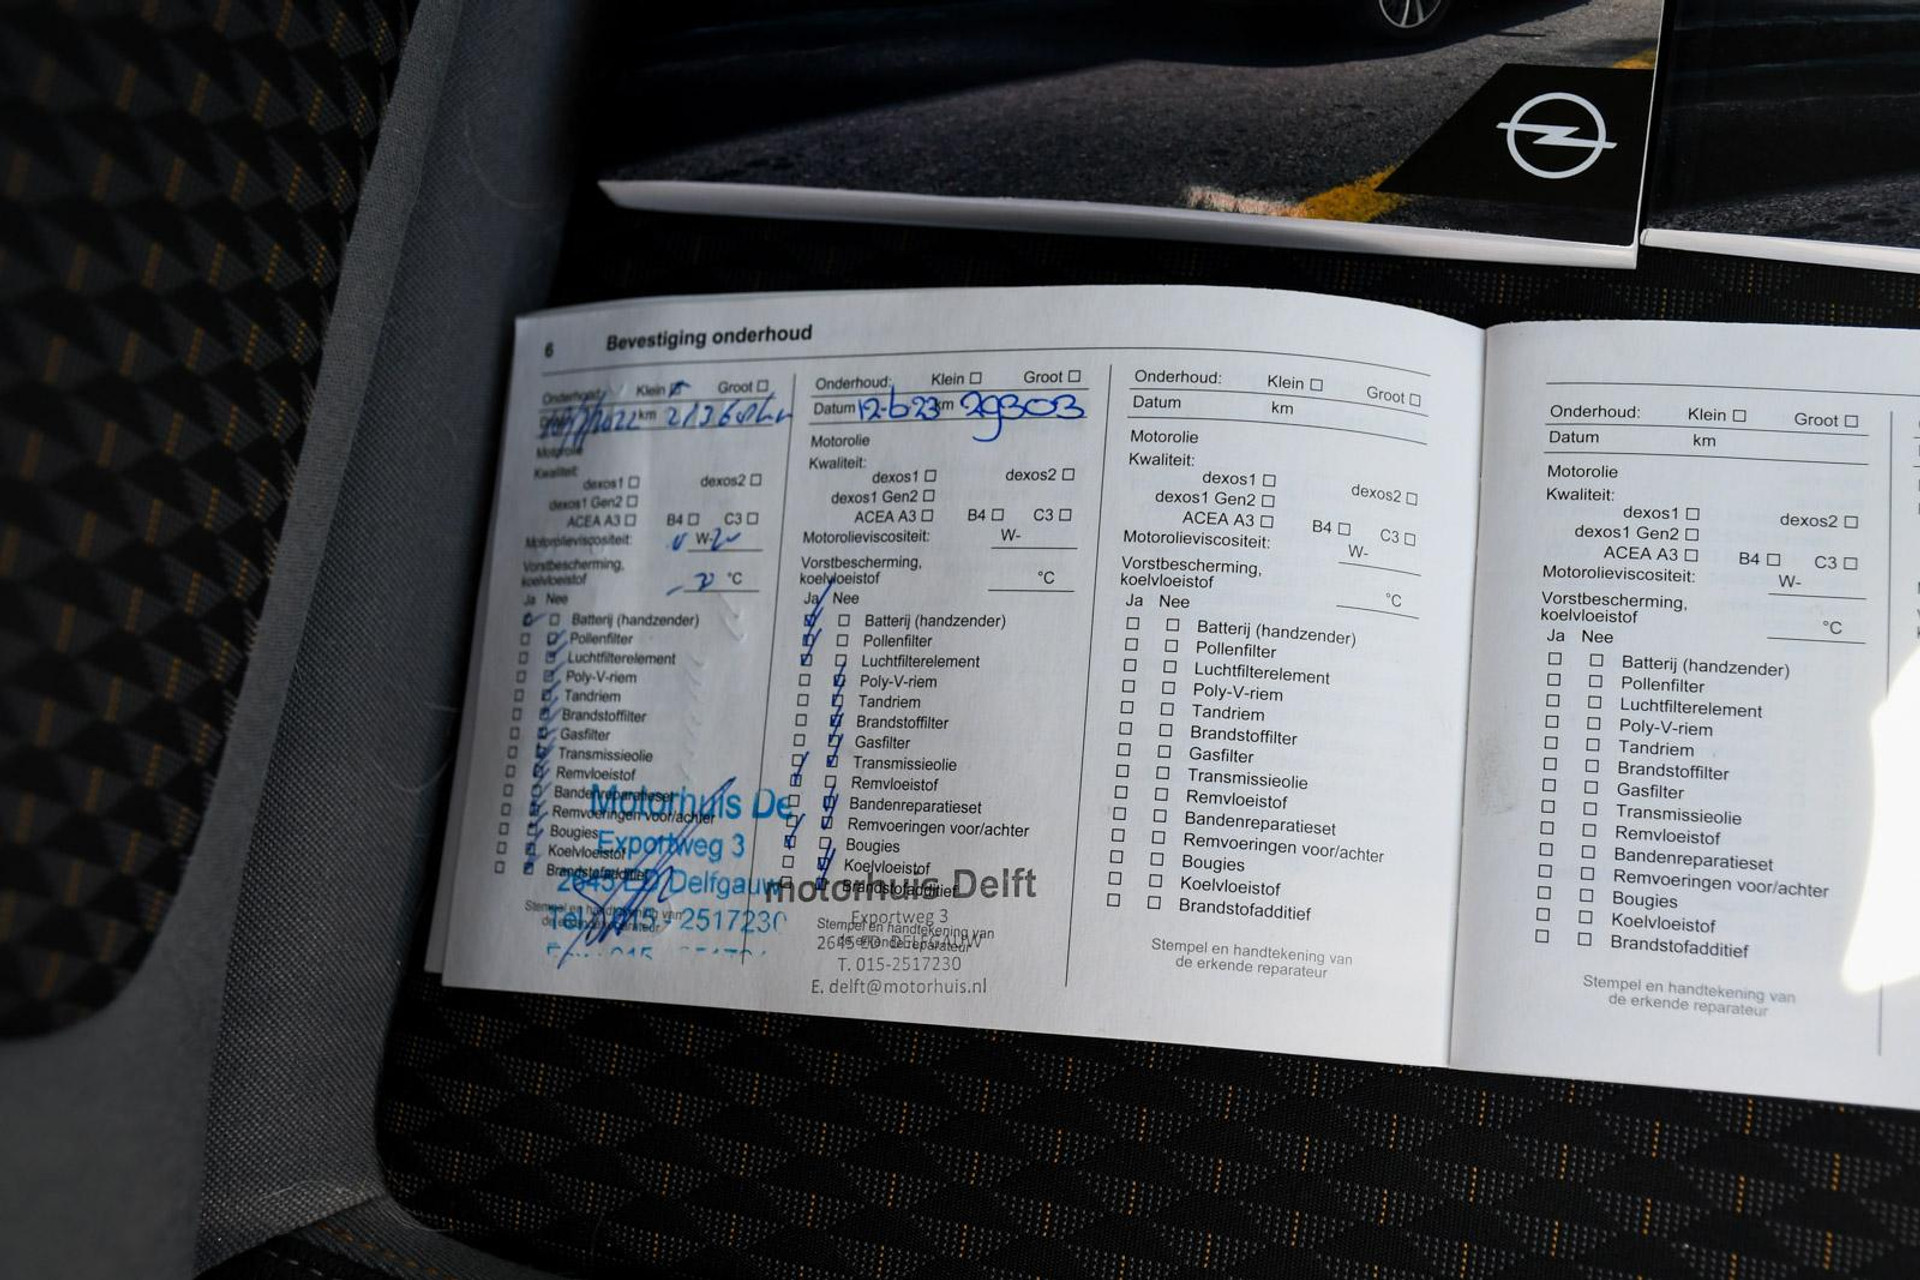 6 Bevestiging onderhoud
Onderhoud: Klein Groot
km
Motorolie
Kwaliteit:
dexos1 dexos2
dexos1 Gen2
ACEA A3 B4 C3
Motorolieviscositeit: W-
Vorstbescherming,
koelvloeistof °C
Ja Nee
Batterij (handzender)
Pollenfilter
Luchtfilterelement
Poly-V-riem
Tandriem
Brandstoffilter
Gasfilter
Transmissieolie
Remvloeistof
Bandenreparatieset
Remvoeringen voor/achter
Bougies
Koelvloeistof
Brandstofadditief
Motorhuis De
Exportweg 3
2645 ED Delfgauw
Tel. 015 - 2517230
Stempel en handtekening van
de erkende reparateur
Onderhoud: Klein Groot
Datum 12-6 23 km 29303
Motorolie
Kwaliteit:
dexos1 dexos2
dexos1 Gen2
ACEA A3 B4 C3
Motorolieviscositeit: W-
Vorstbescherming,
koelvloeistof °C
Ja Nee
Batterij (handzender)
Pollenfilter
Luchtfilterelement
Poly-V-riem
Tandriem
Brandstoffilter
Gasfilter
Transmissieolie
Remvloeistof
Bandenreparatieset
Remvoeringen voor/achter
Bougies
Koelvloeistof
Brandstofadditief
motorhuis Delft
Exportweg 3
Stempel en handtekening van
2645 ED DELFGAUW
de erkende reparateur
T. 015-2517230
E. delft@motorhuis.nl
Onderhoud: Klein Groot
Datum km
Motorolie
Kwaliteit:
dexos1 dexos2
dexos1 Gen2
ACEA A3 B4 C3
Motorolieviscositeit: W-
Vorstbescherming,
koelvloeistof °C
Ja Nee
Batterij (handzender)
Pollenfilter
Luchtfilterelement
Poly-V-riem
Tandriem
Brandstoffilter
Gasfilter
Transmissieolie
Remvloeistof
Bandenreparatieset
Remvoeringen voor/achter
Bougies
Koelvloeistof
Brandstofadditief
Stempel en handtekening van
de erkende reparateur
Onderhoud: Klein Groot
Datum km
Motorolie
Kwaliteit:
dexos1 dexos2
dexos1 Gen2
ACEA A3 B4 C3
Motorolieviscositeit: W-
Vorstbescherming,
koelvloeistof °C
Ja Nee
Batterij (handzender)
Pollenfilter
Luchtfilterelement
Poly-V-riem
Tandriem
Brandstoffilter
Gasfilter
Transmissieolie
Remvloeistof
Bandenreparatieset
Remvoeringen voor/achter
Bougies
Koelvloeistof
Brandstofadditief
Stempel en handtekening van
de erkende reparateur